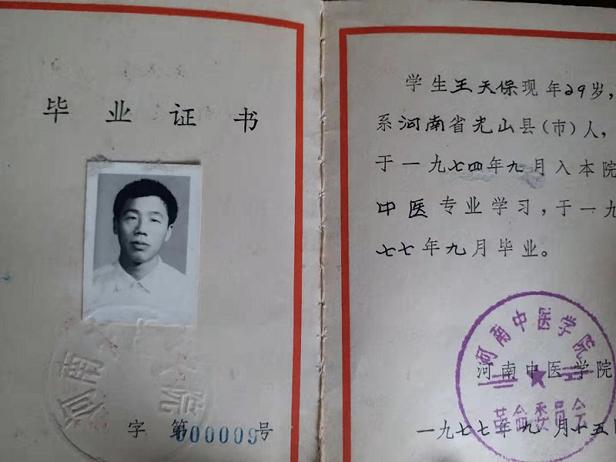 毕业证书
字第000009号
学生王天保现年29岁,
系河南省光山县(市)人,
于一九七四年九月入本院
中医专业学习,于一九
七七年九月毕业。
河南中医学院
革命委员会
河南中医学院
一九七七年九月十五日